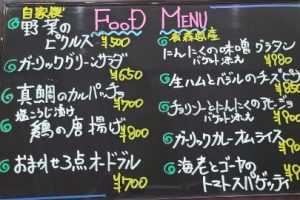 FOOD MENU
自家製
野菜の
ピクルス ¥500
ガーリックグリーンサラダ
¥650
真鯛のカルパッチョ
¥700
塩こうじ漬け
鶏の唐揚げ
¥800
おまかせ3点オードブル
¥1700
青森県産
にんにくの味噌グラタン
バケット添え ¥980
生ハムとバジルのチーズピザ
¥850
チョリソーとにんにくのアヒージョ
バケット添え ¥900
ガーリックカレーオムライス
¥900
海老とゴーヤの
トマトスパゲッティ